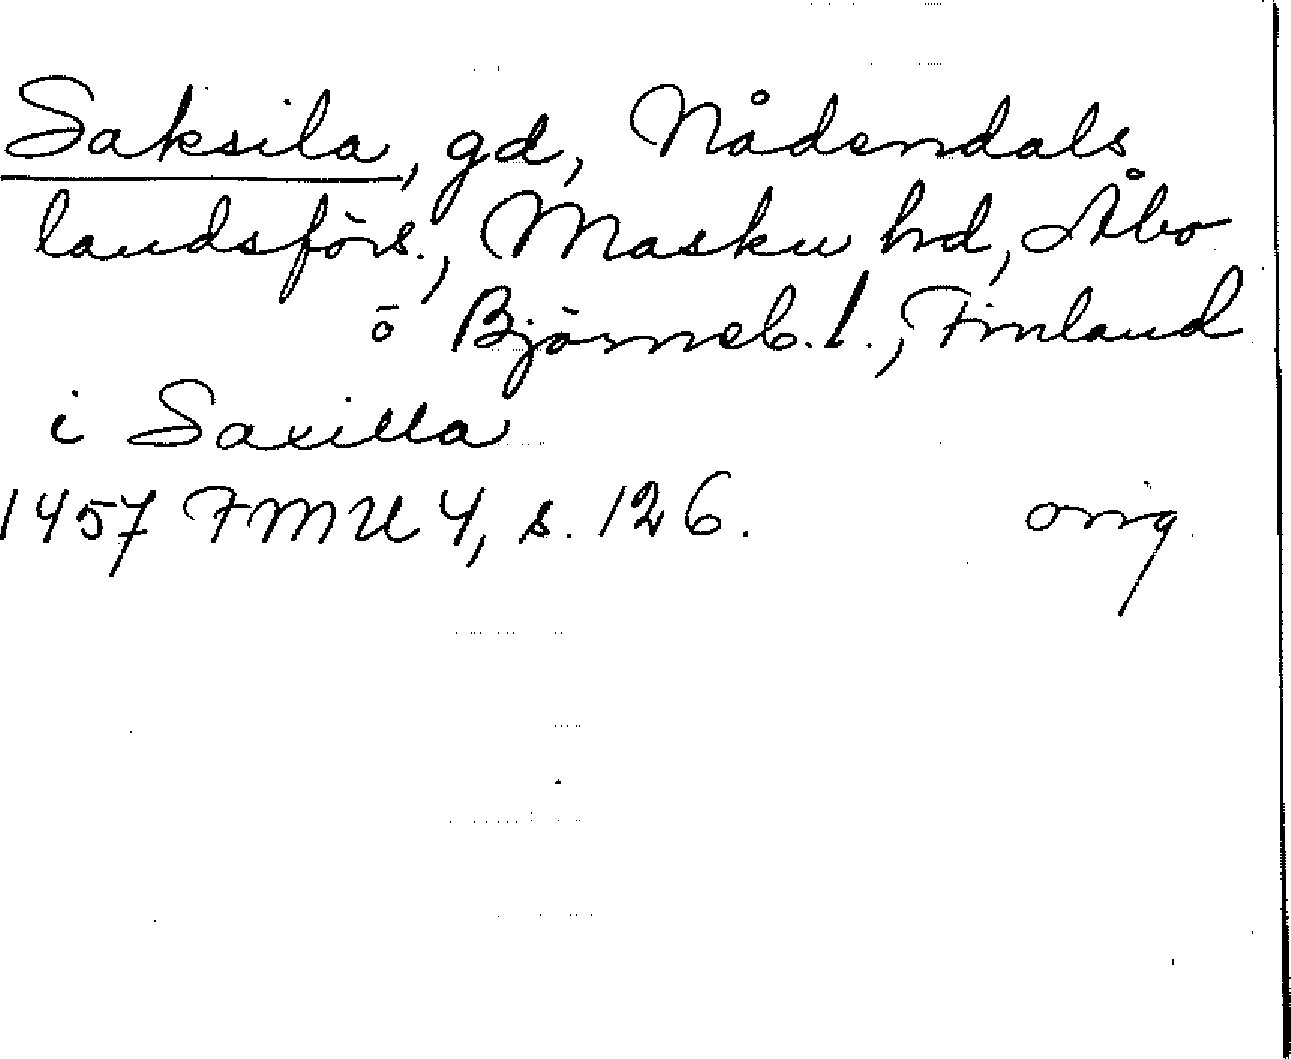 Saksila, gd, Nådendals
landsförs., Masku hd, Åbo
o Björneb. l., Finland
i Saxilla
1457 FMU 4, s. 126. orig